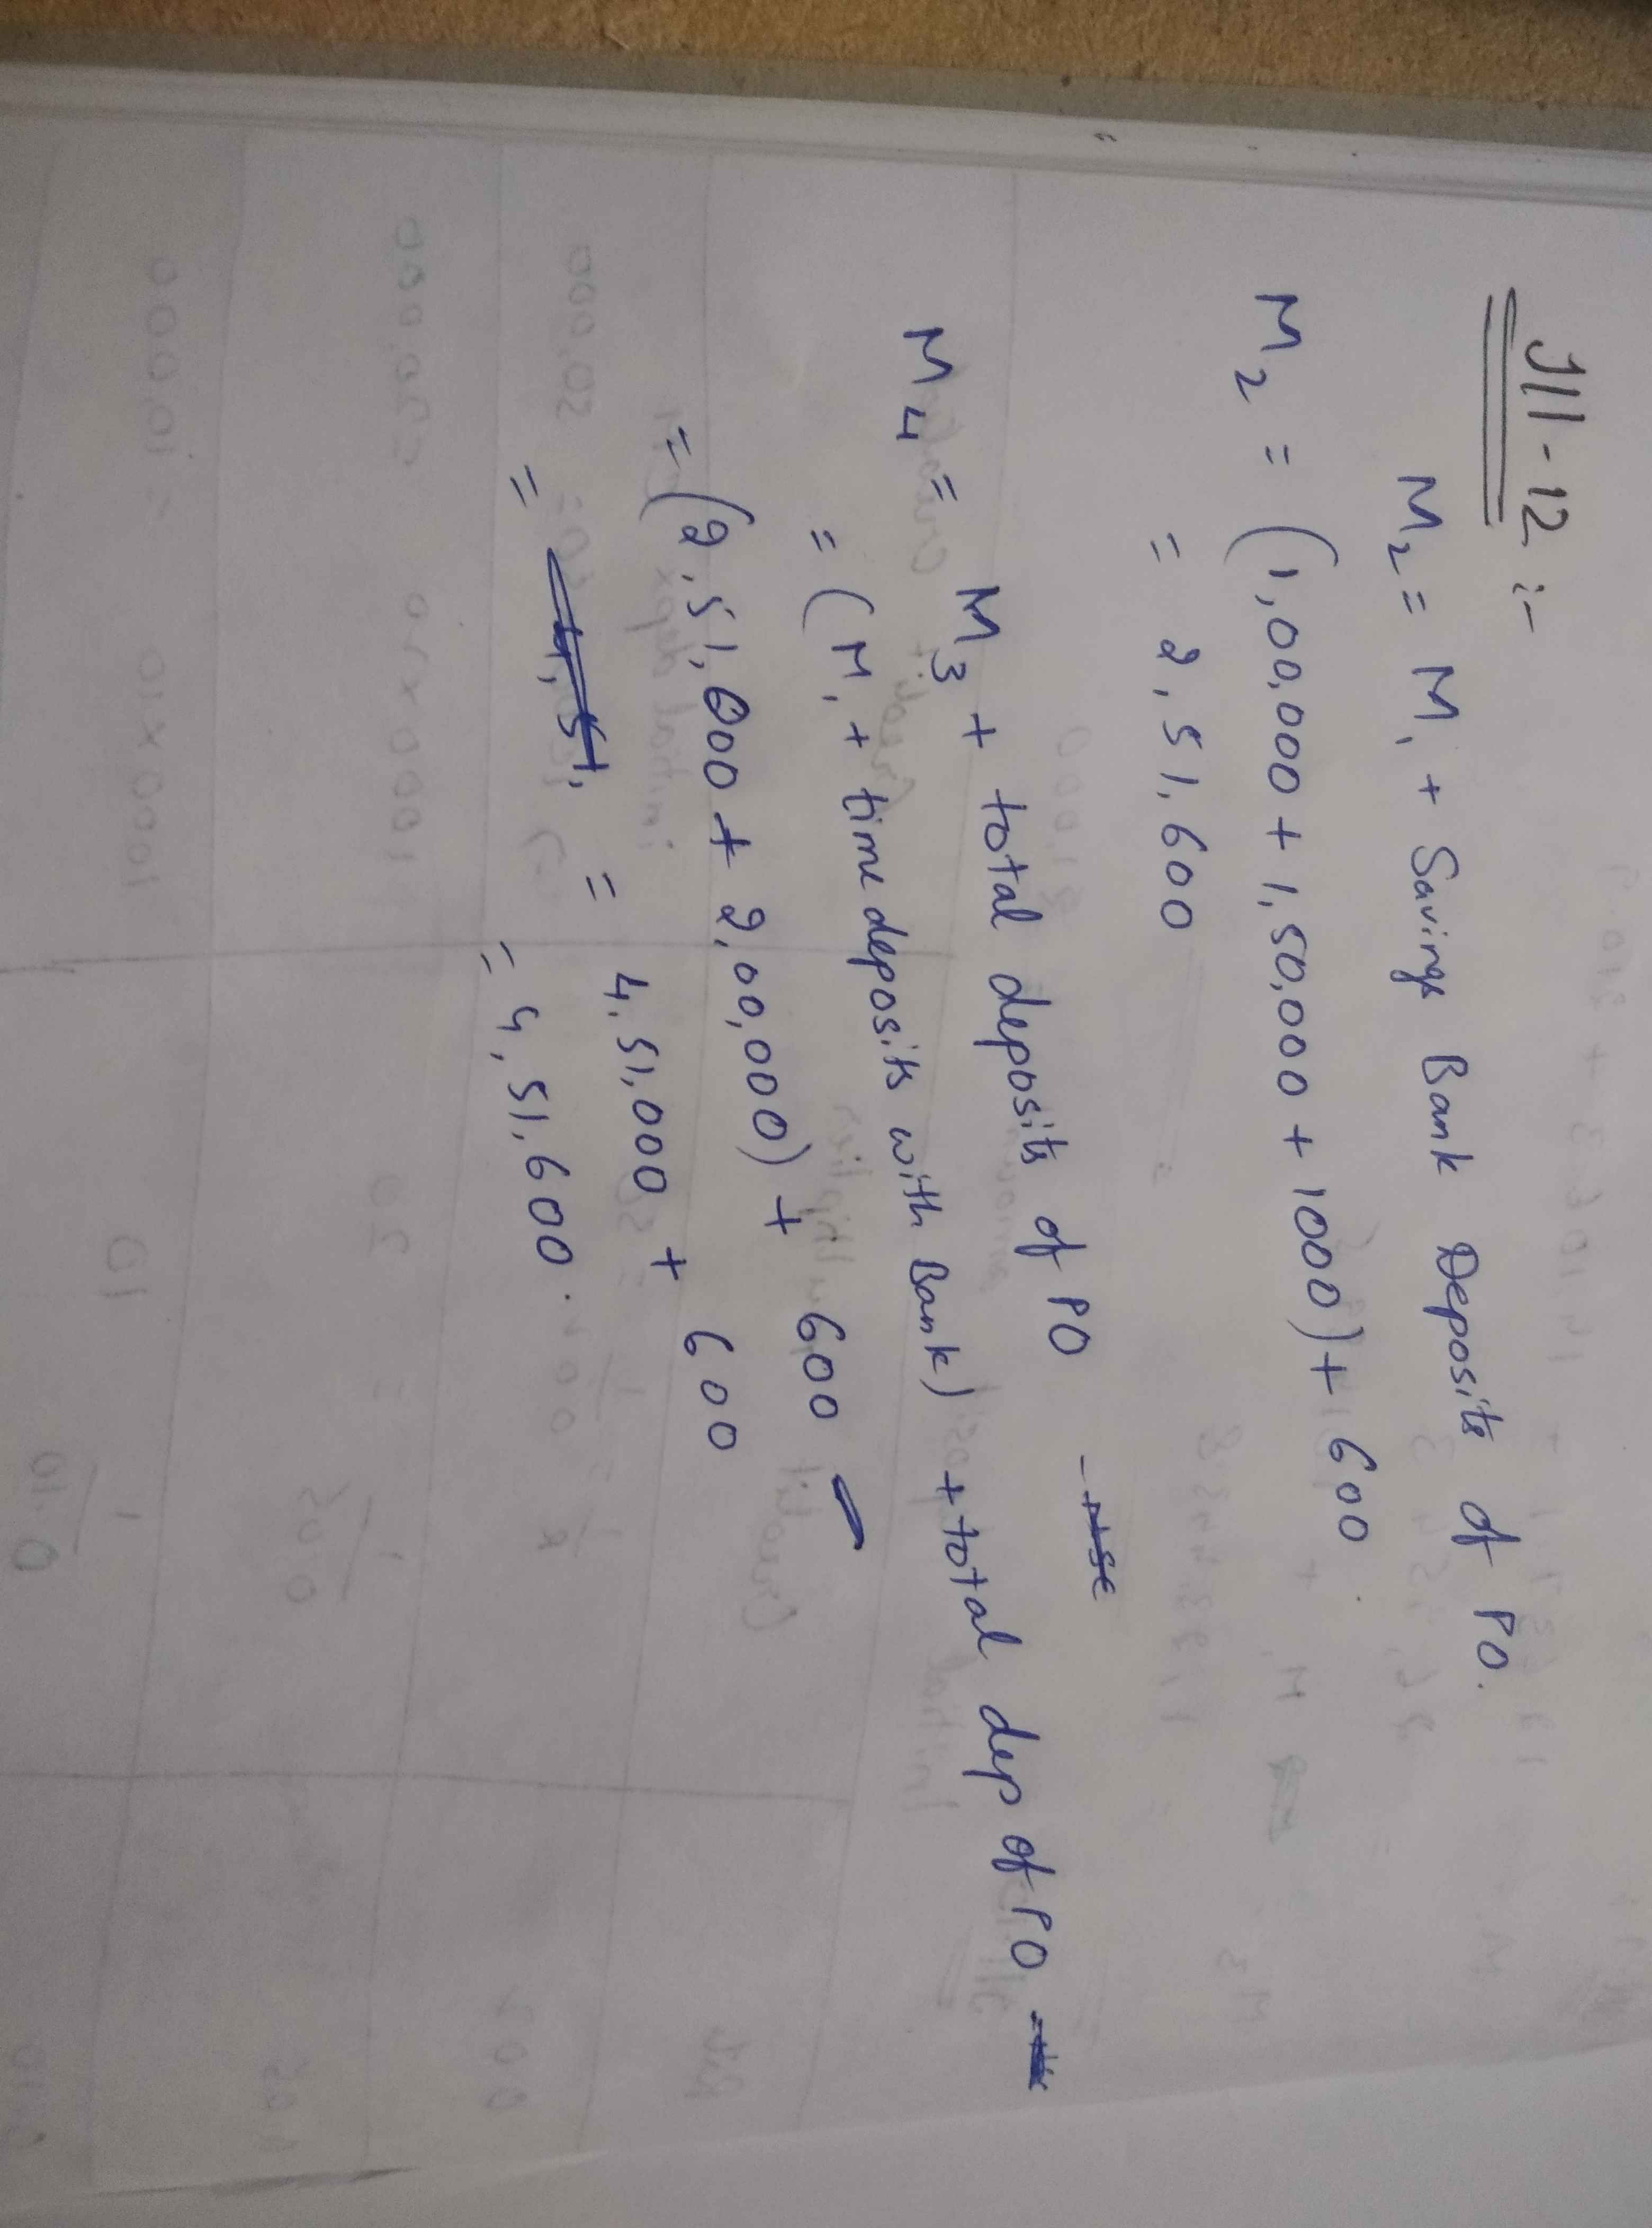 Ill-12 :-
M₂ = M₁ + Savings Bank Deposits of PO.
M₂ = (1,00,000 + 1,50,000 + 1000) + 600
= 2,51,600
M₄ = M₃ + total deposits of PO
= (M₁ + time deposits with Bank) + total dep of PO
= (2,51,000 + 2,00,000) + 600
= 4,51,000 + 600
= 4,51,600.